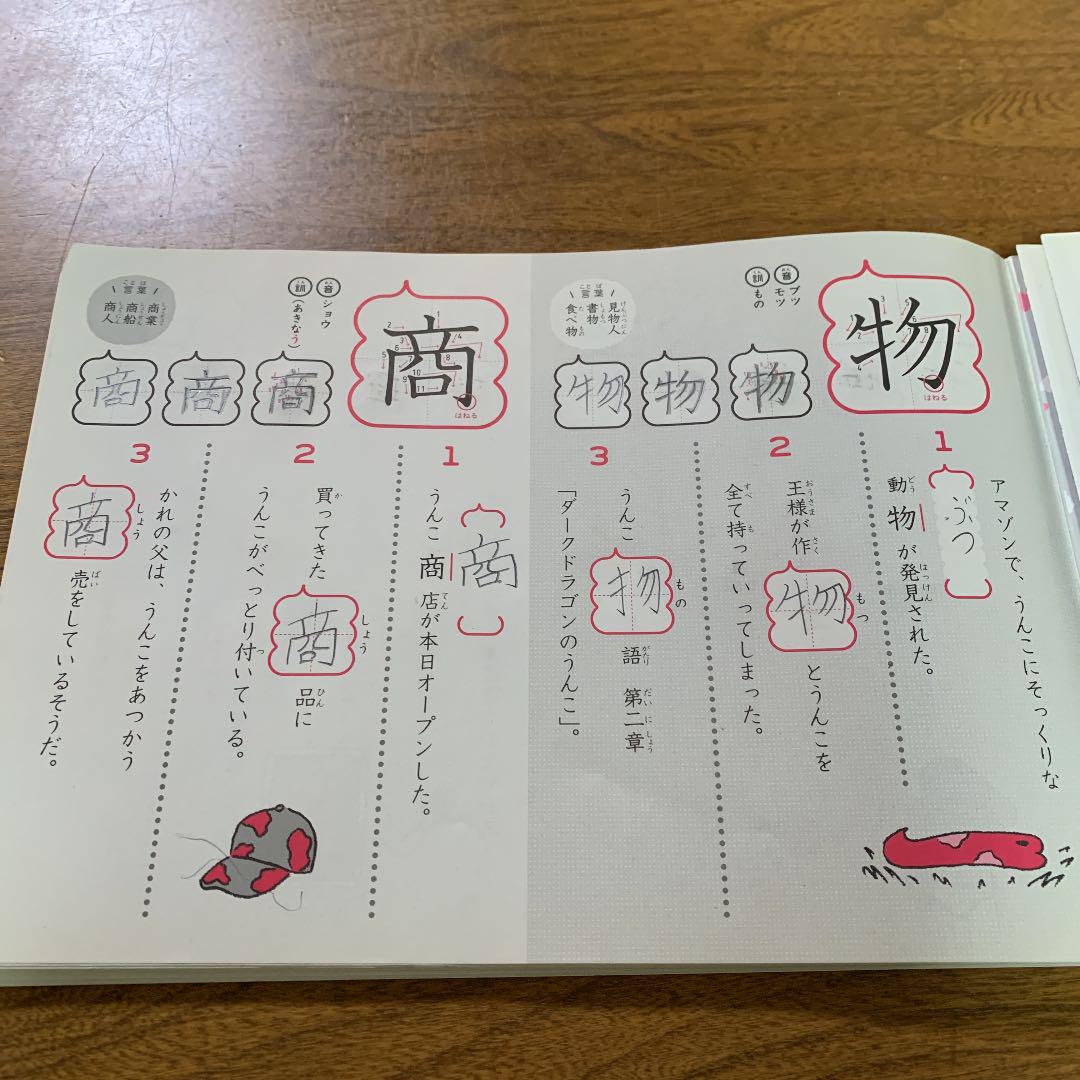 物
はねる
音 ブツ
モツ
訓 もの
言葉
見物人
書物
食べ物
物
物
物
1
アマゾンで、うんこにそっくりな
動物が発見された。
ぶつ
2
王様が作物とうんこを
全て持っていってしまった。
3
うんこ物語 第二章
「ダークドラゴンのうんこ」。
商
はねる
音 ショウ
訓 (あきなう)
言葉
商業
商船
商人
商
商
商
1
商
うんこ商店が本日オープンした。
2
買ってきた商品に
うんこがべっとり付いている。
3
かれの父は、うんこをあつかう
商売をしているそうだ。